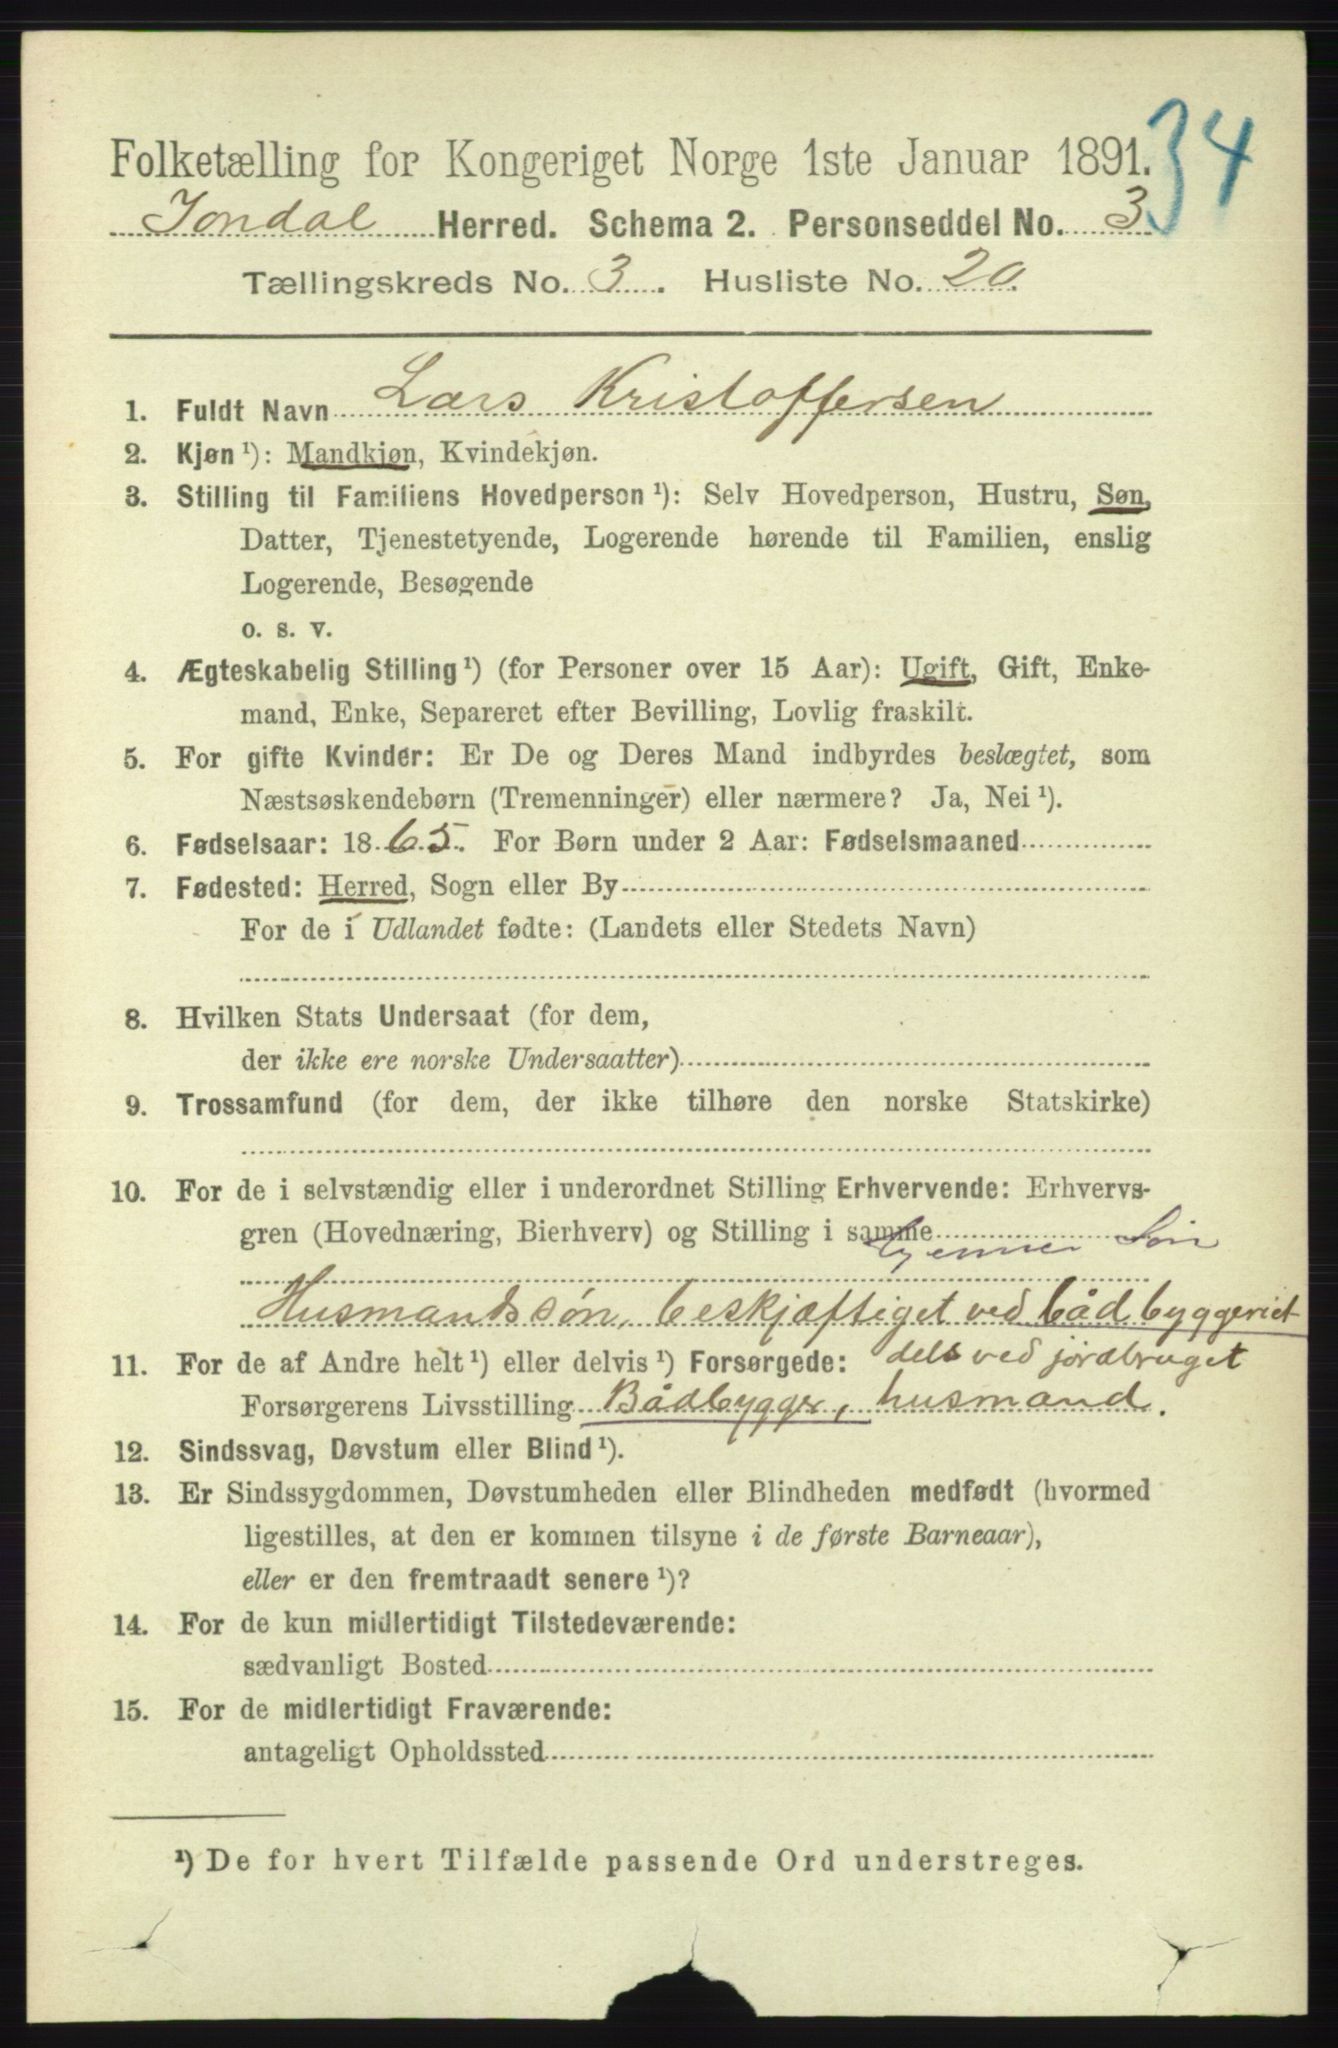 34
Folketælling for Kongeriget Norge 1ste Januar 1891.
Jondal Herred. Schema 2. Personseddel No. 3
Tællingskreds No. 3. Husliste No. 20.
1. Fuldt Navn Lars Kristoffersen
2. Kjøn ¹): Mandkjøn, Kvindekjøn.
3. Stilling til Familiens Hovedperson ¹): Selv Hovedperson, Hustru, Søn,
Datter, Tjenestetyende, Logerende hørende til Familien, enslig
Logerende, Besøgende
o. s. v.
4. Ægteskabelig Stilling ¹) (for Personer over 15 Aar): Ugift, Gift, Enke-
mand, Enke, Separeret efter Bevilling, Lovlig fraskilt.
5. For gifte Kvinder: Er De og Deres Mand indbyrdes beslægtet, som
Næstsøskendebørn (Tremenninger) eller nærmere? Ja, Nei ¹).
6. Fødselsaar: 1865. For Børn under 2 Aar: Fødselsmaaned
7. Fødested: Herred, Sogn eller By
For de i Udlandet fødte: (Landets eller Stedets Navn)
8. Hvilken Stats Undersaat (for dem,
der ikke ere norske Undersaatter)
9. Trossamfund (for dem, der ikke tilhøre den norske Statskirke)
10. For de i selvstændig eller i underordnet Stilling Erhvervende: Erhvervs-
gren (Hovednæring, Bierhverv) og Stilling i samme
Søn
Husmandssøn, beskjæftiget ved bådbyggeriet
11. For de af Andre helt ¹) eller delvis ¹) Forsørgede: dels ved jordbruget
Forsørgerens Livsstilling Bådbygger, husmand.
12. Sindssvag, Døvstum eller Blind ¹).
13. Er Sindssygdommen, Døvstumheden eller Blindheden medfødt (hvormed
ligestilles, at den er kommen tilsyne i de første Barneaar),
eller er den fremtraadt senere ¹)?
14. For de kun midlertidigt Tilstedeværende:
sædvanligt Bosted
15. For de midlertidigt Fraværende:
antageligt Opholdssted
¹) De for hvert Tilfælde passende Ord understreges.